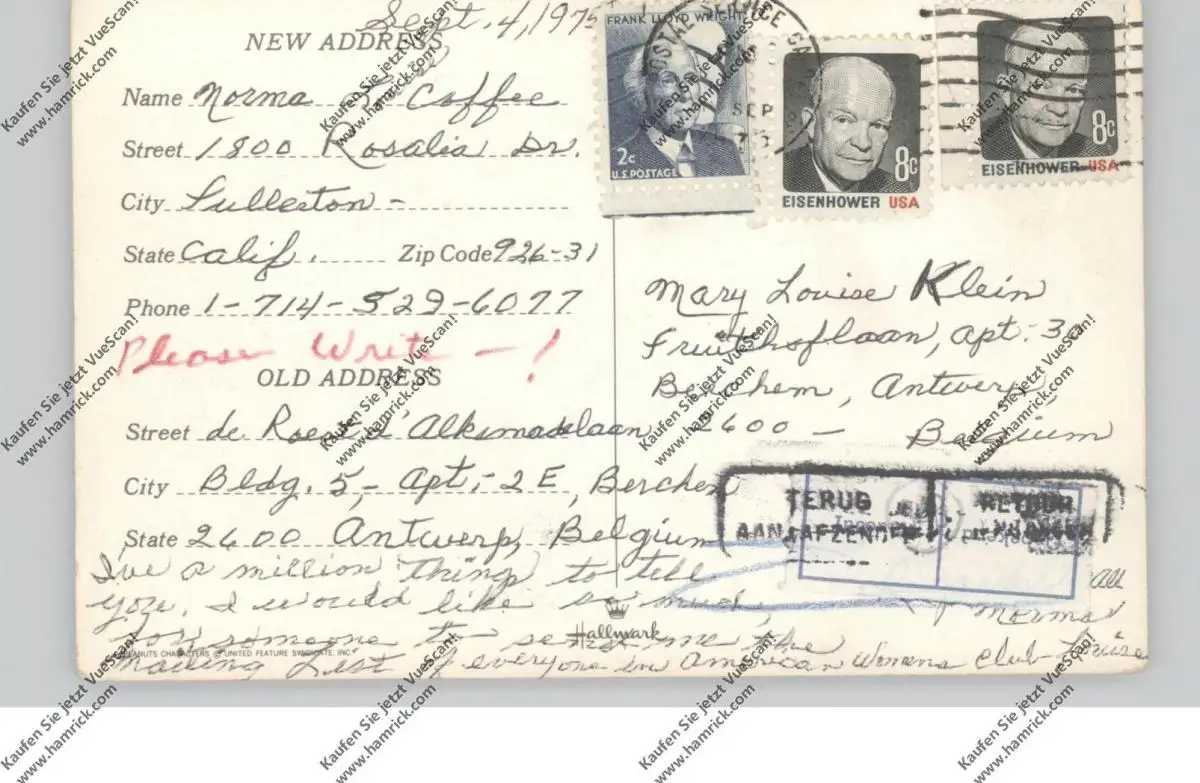 Sept. 4, 1975
NEW ADDRESS
Name Norma Coffee
Street 1800 Rosalia Dr.
City Fullerton -
State Calif. Zip Code 926-31
Phone 1-714-529-6077
Please Write - !
OLD ADDRESS
Street de Roest d'Alkemadelaan
City Bldg. 5, - Apt. - 2E, Berchem
State 2600 Antwerp, Belgium
I've a million things to tell
you. I would like so much,
for someone to send me the
mailing list of everyone in American Womens Club
PEANUTS CHARACTERS © UNITED FEATURE SYNDICATE, INC.
Hallmark
FRANK LLOYD WRIGHT
2c
U.S. POSTAGE
POSTAL SERVICE CA
SEP
8c
EISENHOWER USA
8c
EISENHOWER USA
Mary Louise Klein
apt. 30
Berchem, Antwerp,
2600 - Belgium
TERUG
AAN AFZENDER
RETOUR
Norma
Kaufen Sie jetzt VueScan!
www.hamrick.com